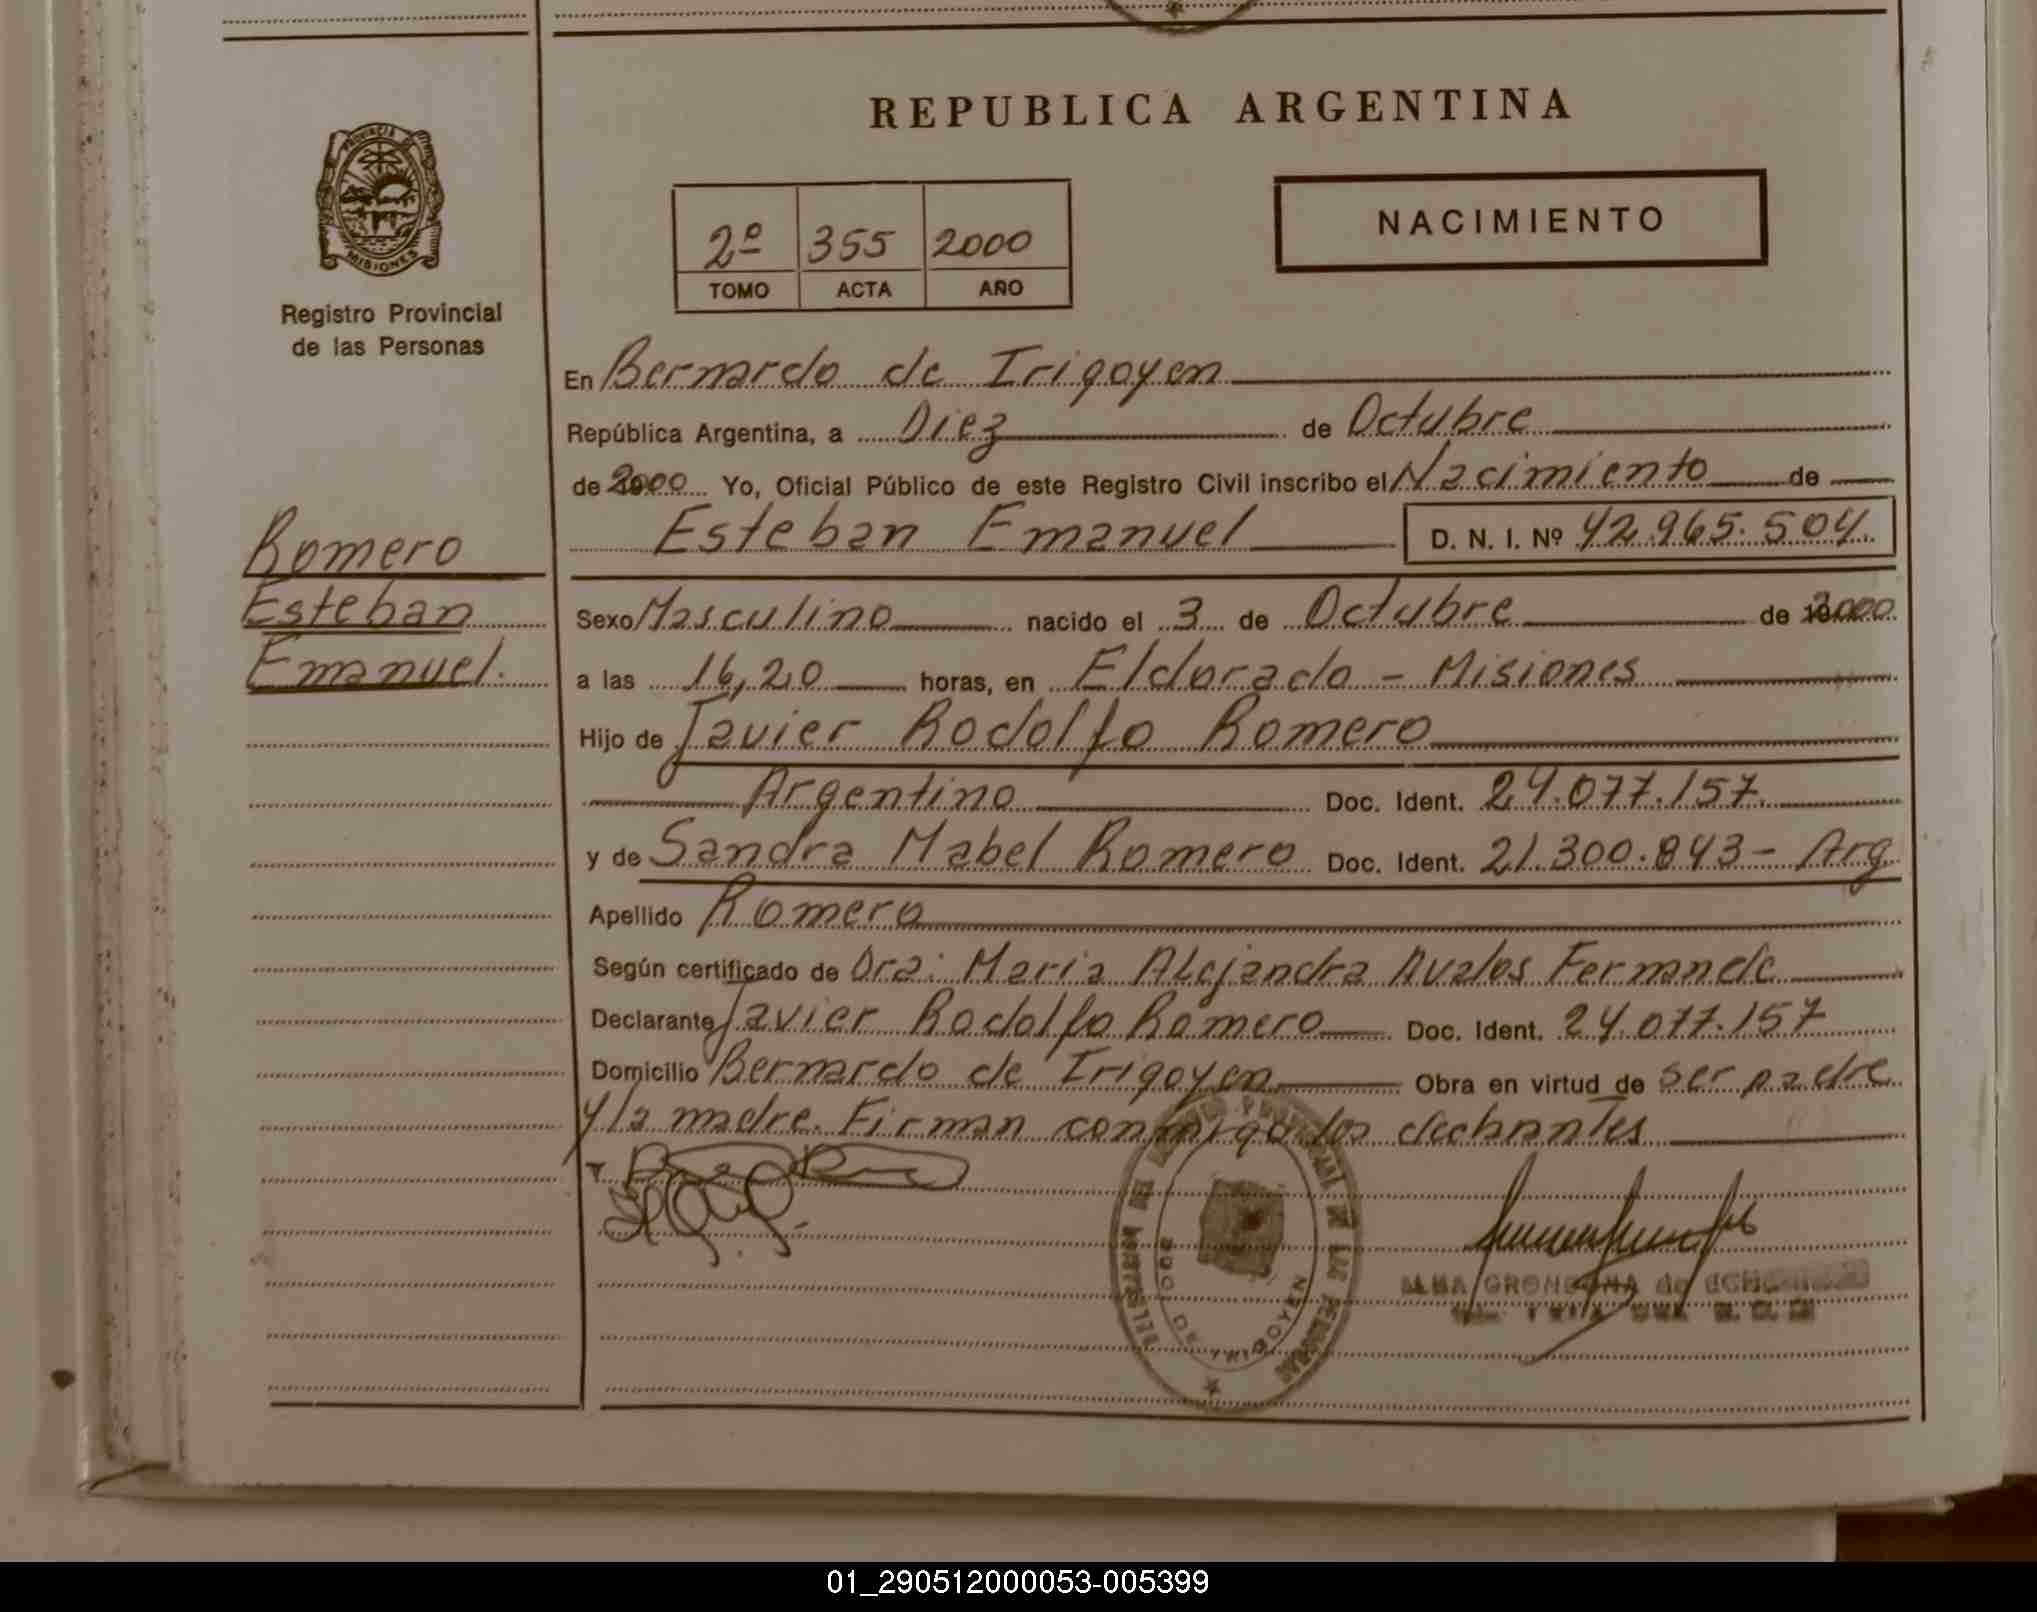 REPUBLICA ARGENTINA
PROVINCIA
MISIONES
Registro Provincial
de las Personas
2º 355 2000
TOMO ACTA AÑO
NACIMIENTO
En Bernardo de Irigoyen
República Argentina, a Diez de Octubre
de 2000 Yo, Oficial Público de este Registro Civil inscribo el Nacimiento de
Esteban Emanuel D. N. I. Nº 42.965.504.
Romero
Esteban
Emanuel.
Sexo Masculino nacido el 3 de Octubre de 2000
a las 16,20 horas, en Eldorado - Misiones
Hijo de Javier Rodolfo Romero
Argentino Doc. Ident. 24.077.157.
y de Sandra Mabel Romero Doc. Ident. 21.300.843- Arg
Apellido Romero
Según certificado de Dra: Maria Alejandra Avalos Fernande
Declarante Javier Rodolfo Romero Doc. Ident. 24.077.157
Domicilio Bernardo de Irigoyen Obra en virtud de ser padre
y la madre. Firman conmigo los
DE LAS PERSONAS
BDO. DE IRIGOYEN
GRONDONA de
01_290512000053-005399